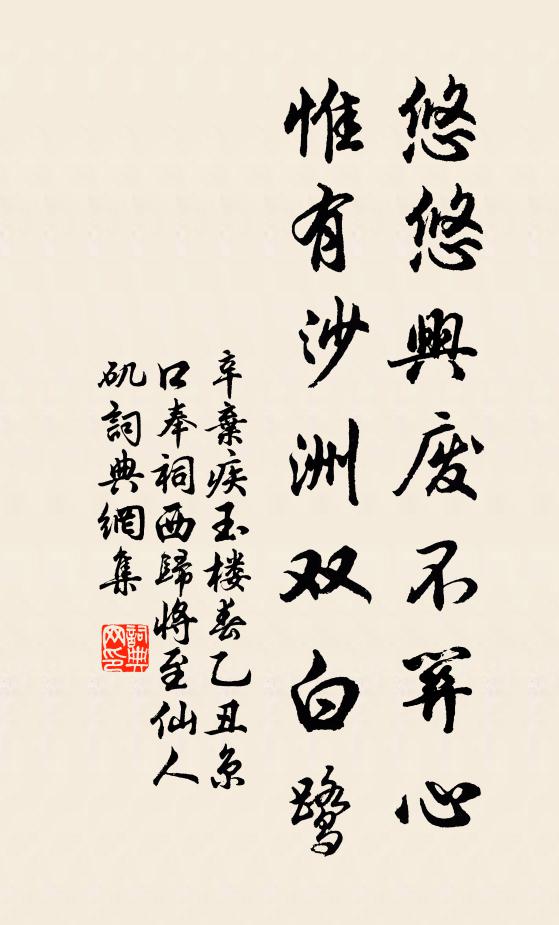 悠悠興废不關心
惟有沙洲双白鹭
辛棄疾玉楼春乙丑京
口奉祠西歸将至仙人
矶詞典網集
詞典
网印